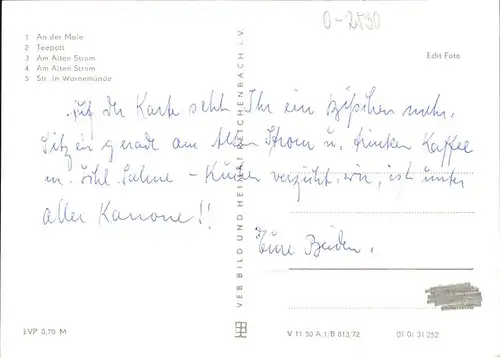 0-2530
1 An der Mole
2 Teepott
3 Am Alten Strom
4 Am Alten Strom
5 Str. in Warnemünde
Echt Foto
Auf der Karte seht Ihr ein bißchen mehr.
Sitzen gerade am Alten Strom u. trinken Kaffee
m. Sahne - Kuchen verzicht. wir, ist unter
aller Kanone!!
Eure Beiden.
VEB BILD UND HEIMAT REICHENBACH I. V.
EVP 0,20 M
V 11 50 A 1/B 813/72
01 01 31 252